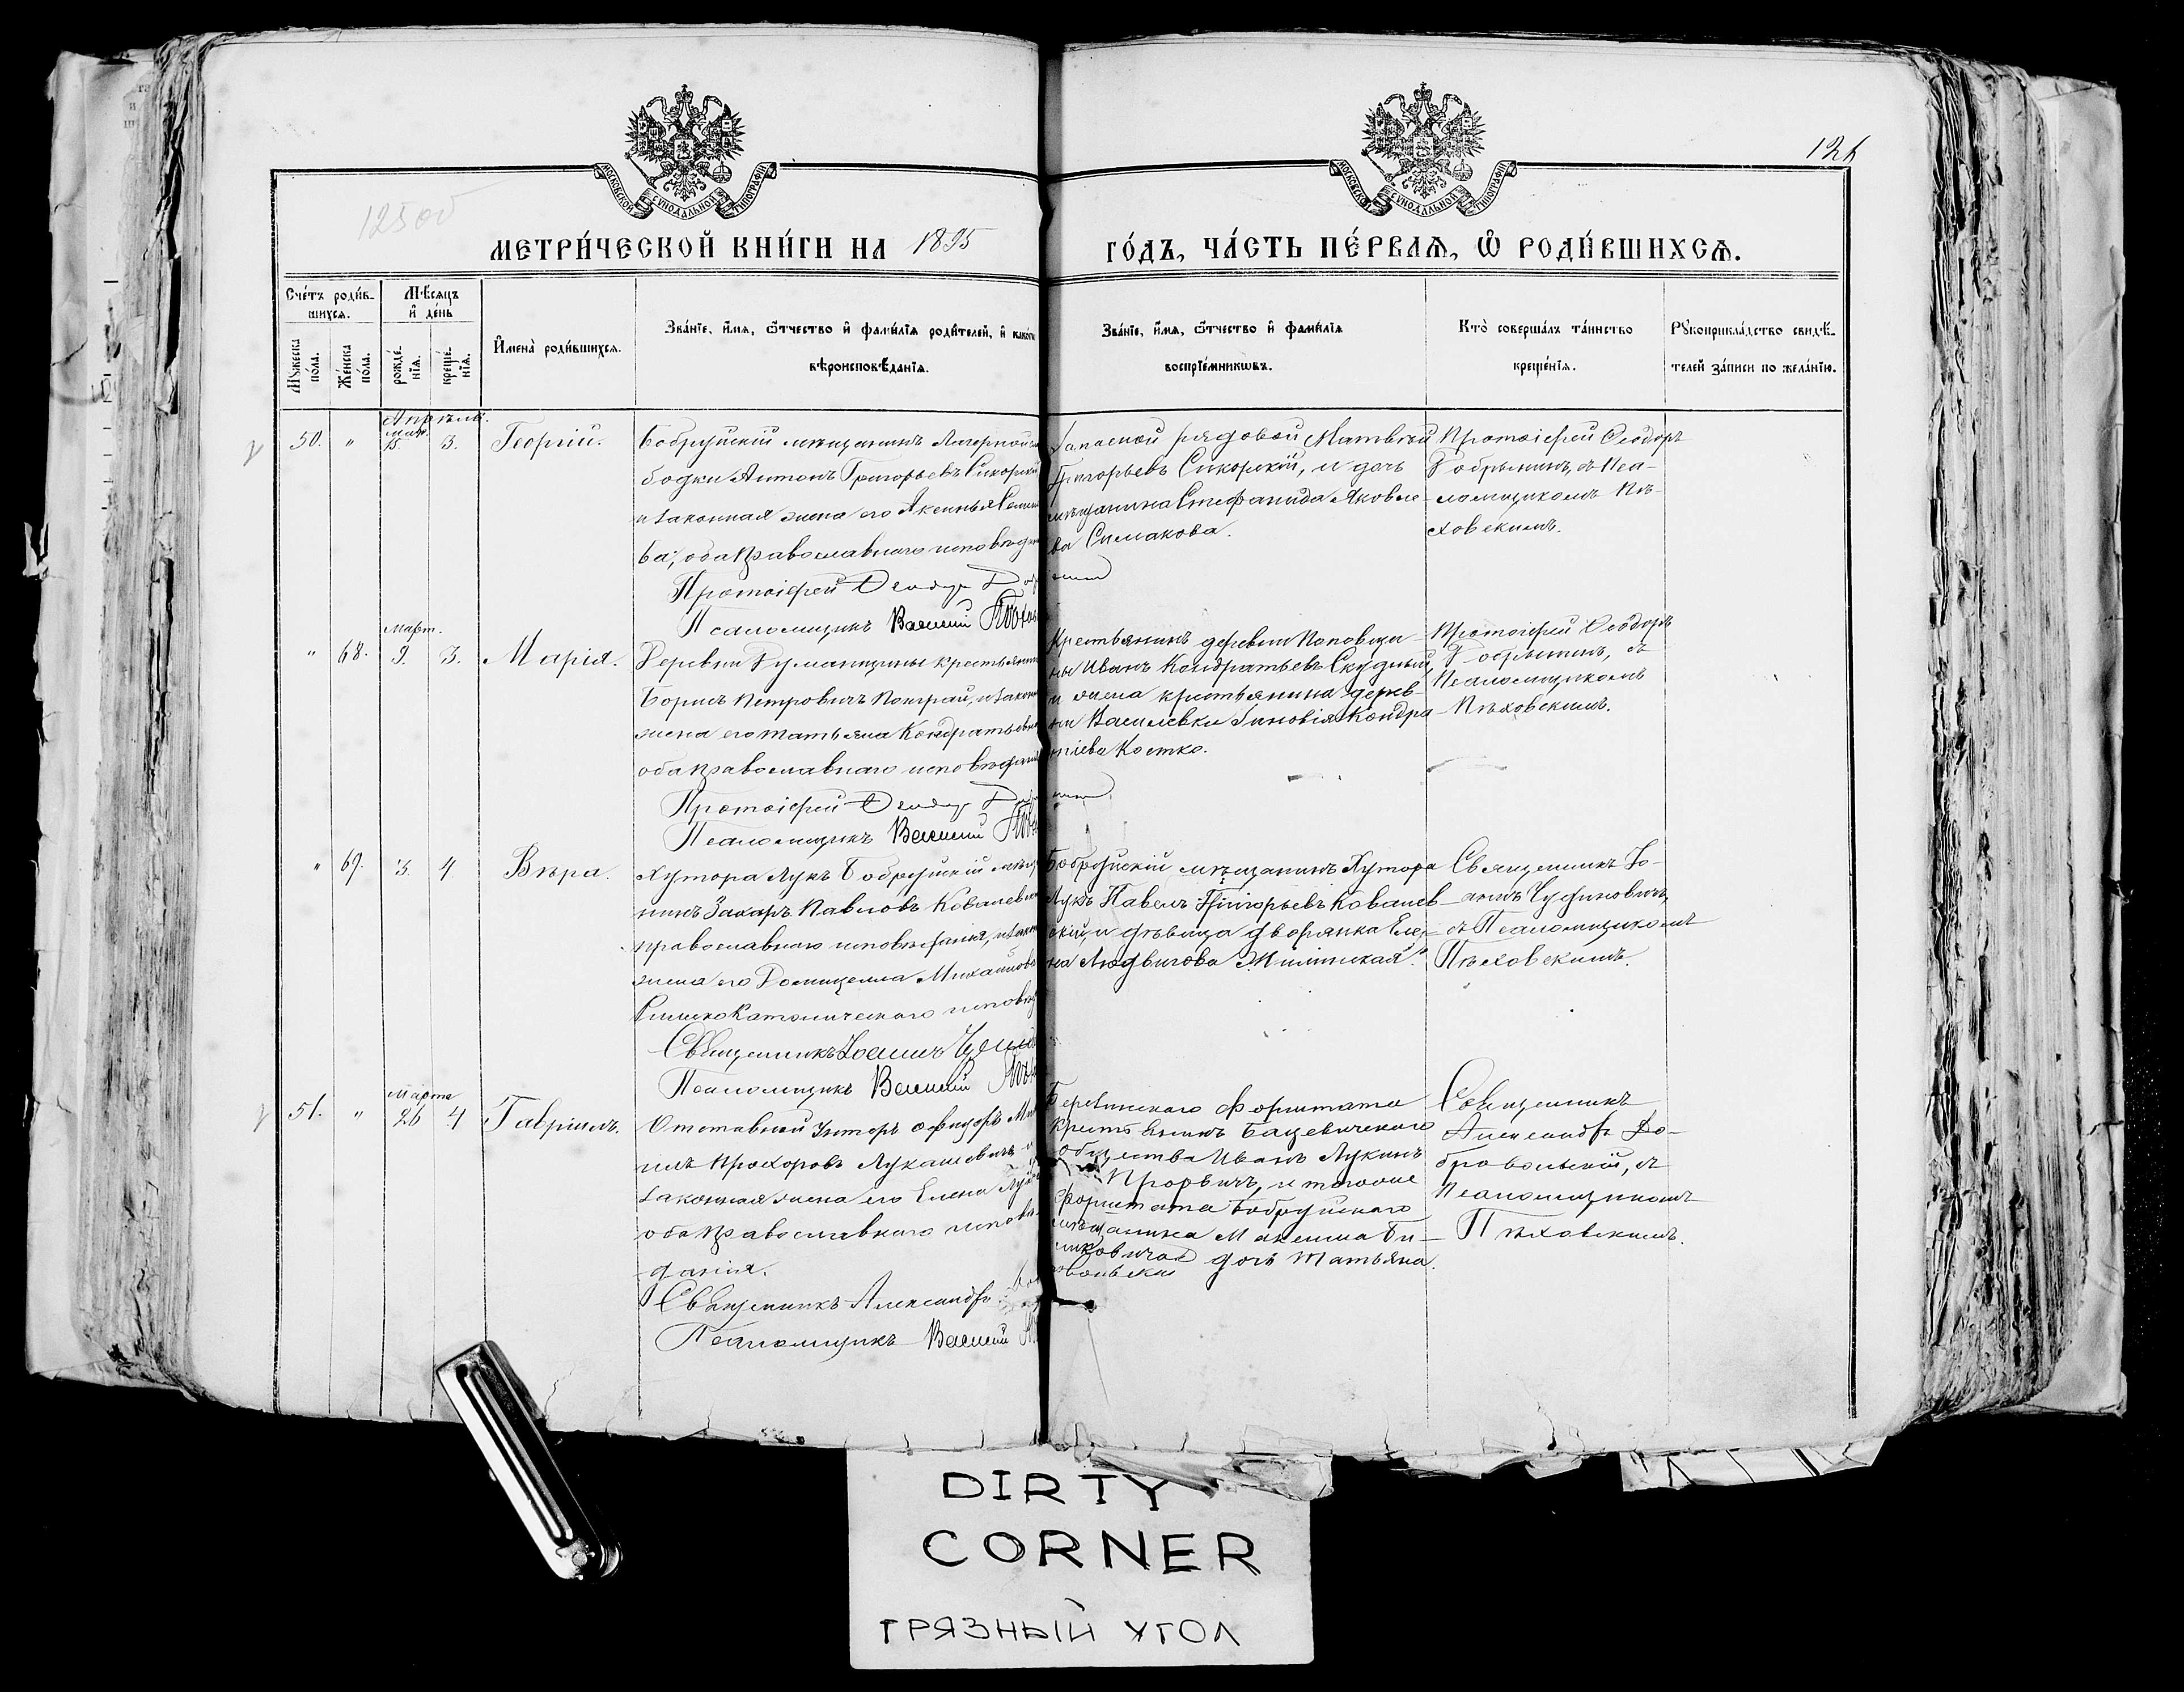 126
125 об
МОСКОВСКОЙ СѴНОДАЛЬНОЙ ТИПОГРАФІИ
МОСКОВСКОЙ СѴНОДАЛЬНОЙ ТИПОГРАФІИ
МЕТРИ́ЧЕСКОЙ КНИ́ГИ НА 1895 ГО́ДЪ, ЧА́СТЬ ПЕ́РВАѦ, Ѡ҆ РОДИ́ВШИХСѦ.
Сче́тъ роди́в-
шихсѧ.
Мꙋ́жеска по́ла.
Же́нска по́ла.
Мѣ́сѧцъ и҆ де́нь
рожде́-
нїѧ.
креще́-
нїѧ.
И҆мена̀ роди́вшихсѧ.
Зва́нїе, и҆́мѧ, ѻ҆́тчество и҆ фами́лїѧ роди́телей, и҆ како́гѡ
вѣроисповѣ́данїѧ.
Зва́нїе, и҆́мѧ, ѻ҆́тчество и҆ фами́лїѧ
воспрїе́мникѡвъ.
Кто̀ соверша́лъ та́инство
креще́нїѧ.
Рꙋкоприкла́дство свидѣ́-
телей за́писи по жела́нїю.
Апрѣль.
Мар.
50. " 15. 3. Георгій.
Бобруйскій мѣщанинъ Лагерной сло
бодки Антонъ Григорьевъ Сикорскій
и законная жена его Аксинья Семено
ва, оба православнаго исповѣдан
Протоіерей Ѳеодор
Псаломщикъ Василій Пѣхов
Запасной рядовой Матвѣй
Григорьевъ Сикорскій, и дочь
мѣщанина Стефанида Яковле
ва Симакова.
Протоіерей Ѳеодоръ
Добрынинъ, съ Пса-
ломщикомъ Пѣ-
ховскимъ.
Март.
" 68. 9. 3. Марія.
Деревни Думанщины крестьянин
Борисъ Петровичъ Понграй, и закон
жена его Татьяна Кондратьевна
оба православнаго исповѣдані
Протоіерей Ѳеодор
Псаломщикъ Василій Пѣх
Крестьянинъ деревни Поповщи
ны Иванъ Кондратьевъ Скудный,
и жена крестьянина дерев
ни Василевки Зиновія Кондра
тіева Костко.
Протоіерей Ѳеодоръ
Добрынинъ, съ
Псаломщикомъ
Пѣховскимъ.
" 69. 3. 4 Вѣра.
Хутора Лукъ Бобруйскій мѣща
нинъ Захаръ Павловъ Ковалевск
православнаго исповѣданія, и закон
жена его Домицелла Михайлов
Римско Католическаго исповѣд
Священникъ Іоаннъ
Псаломщикъ Василій Пѣх
Бобруйскій мѣщанинъ Хутора
Лукъ Павелъ Григорьевъ Ковалев
скій, и дѣвица дворянка Еле-
на Людвигова Жилинская.
Священникъ Іо-
аннъ
съ Псаломщикомъ
Пѣховскимъ.
Марта
51. " 26 4 Гавріилъ.
Отставной унтеръ офицеръ Ми
илъ Прохоровъ Лукашевичъ и
законная жена его Елена Лук
оба православнаго исповѣ
данія.
Священникъ Александръ
Псаломщикъ Василій
Березинскаго форштата
крестьянинъ Бацевичскаго
общества Иванъ Лукинъ
Прорвичъ, и того же
форштата Бобруйскаго
мѣщанина Максима Би-
риковича дочь Татьяна.
Священникъ
Александръ До-
бровольскій, съ
Псаломщикомъ
Пѣховскимъ.
DIRTY
CORNER
ГРЯЗНЫЙ УГОЛ